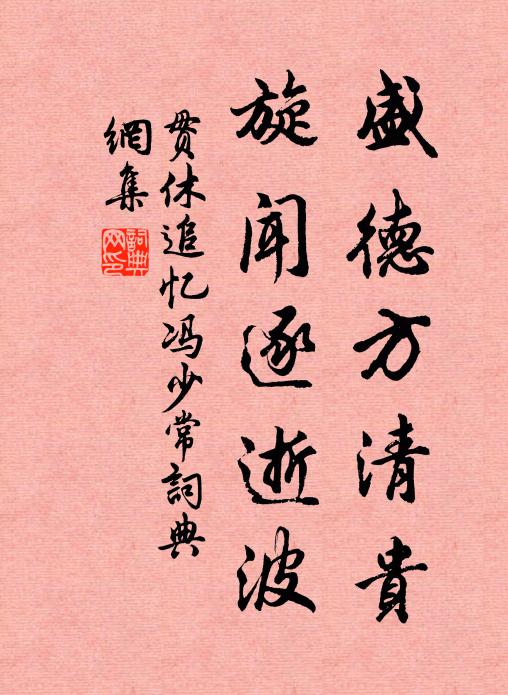 盛德方清貴
旋闻逐逝波
贯休追忆冯少常詞典
網集
詞典
网印